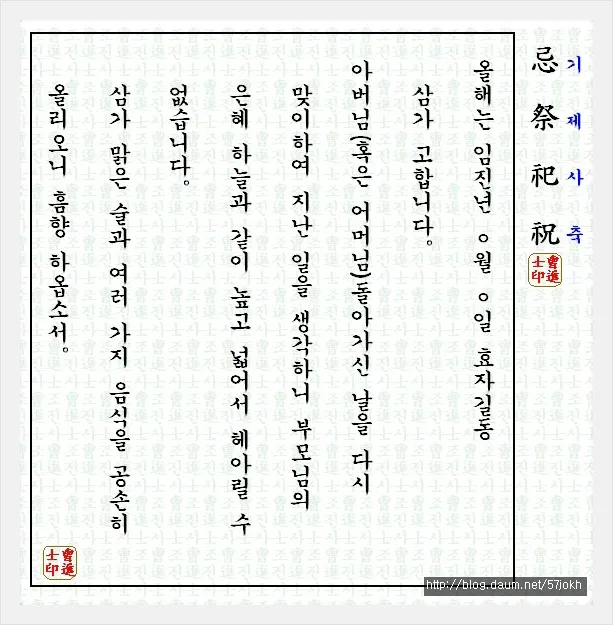 忌祭祀祝
기제사축
曺進士印
올해는 임진년 ㅇ월 ㅇ일 효자길동
삼가 고합니다.
아버님(혹은 어머님)돌아가신 날을 다시
맞이하여 지난 일을 생각하니 부모님의
은혜 하늘과 같이 높고 넓어서 헤아릴 수
없습니다.
삼가 맑은 술과 여러 가지 음식을 공손히
올리오니 흠향 하옵소서.
曺進士印
http://blog.daum.net/57jokh